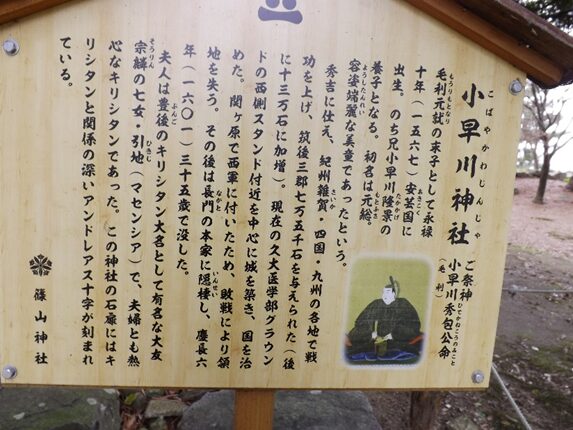 小早川神社
こばやかわじんじゃ
ご祭神
小早川秀包公命
ひでかねこうのみこと
(毛利)
毛利元就の末子として永禄
もうりもとなり
十年(一五六七)安芸国に
あき
出生。のち兄小早川隆景の
たかかげ
養子となる。初名は元総。
もとふさ
容姿端麗な美童であったという。
ようしたんれい
秀吉に仕え、紀州雑賀・四国・九州の各地で戦
さいか
功を上げ、筑後三郡七万五千石を与えられた(後
に十三万石に加増)。現在の久大医学部グラウン
ドの西側スタンド付近を中心に城を築き、国を治
めた。関ヶ原で西軍に付いたため、敗戦により領
地を失う。その後は長門の本家に隠棲し、慶長六
ながと
いんせい
年(一六〇一)三十五歳で没した。
夫人は豊後のキリシタン大名として有名な大友
ぶんご
宗麟の七女・引地(マセンシア)で、夫婦とも熱
そうりん
ひきじ
心なキリシタンであった。この神社の石扉にはキ
リシタンと関係の深いアンドレアス十字が刻まれ
ている。
篠山神社